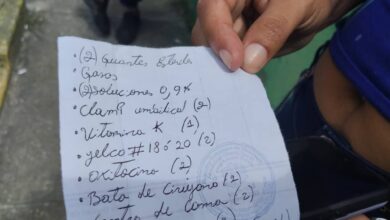 • (2) Guantes Estériles
Gasas
• (2) Soluciones 0,9%
• Clamp umbilical (2)
• Vitamina K (1)
• yelco # 18 ó 20 (2)
• Oxitocina (2)
• Bata de Cirujano (2)
de Cama (2)